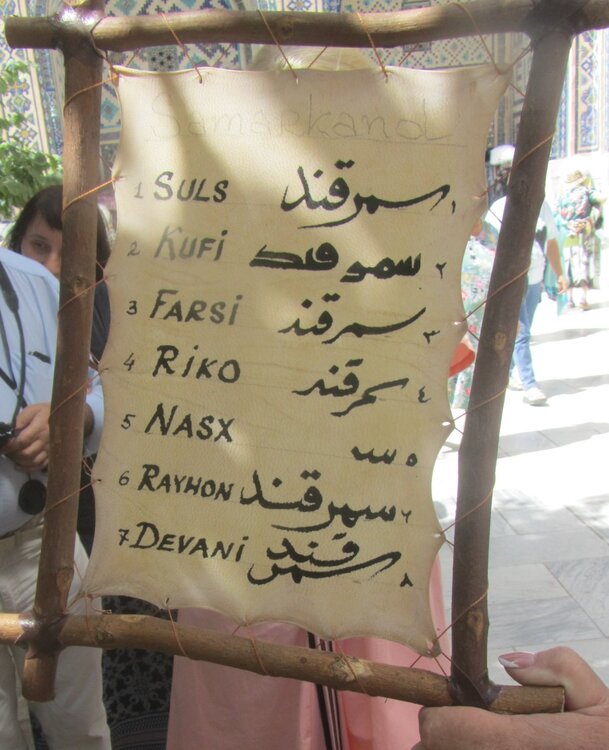 Samarkand
1 SULS سمرقند ١
2 KUFi سمرقند ٢
3 FARSi سمرقند ٣
4 RiKO سمرقند ٤
5 NASX ٥
6 RAYHON سمرقند
7 DEVANi سمرقند ٨